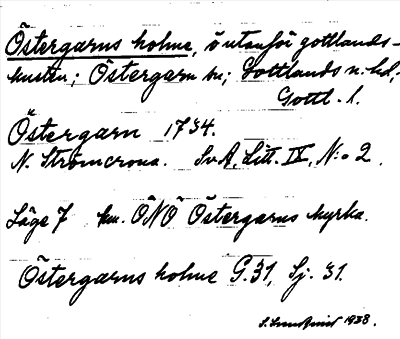 Östergarns holme, ö utanför gottlands-
kusten; Östergarn sn; Gottlands n. hd,
Gottl. l.
Östergarn 1734.
N. Strömcrona. SvA, Litt. IV, N:o 2.
Läge 7 km. ÖNÖ Östergarns kyrka.
Östergarns holme G.31, Sj. 31.
1938.